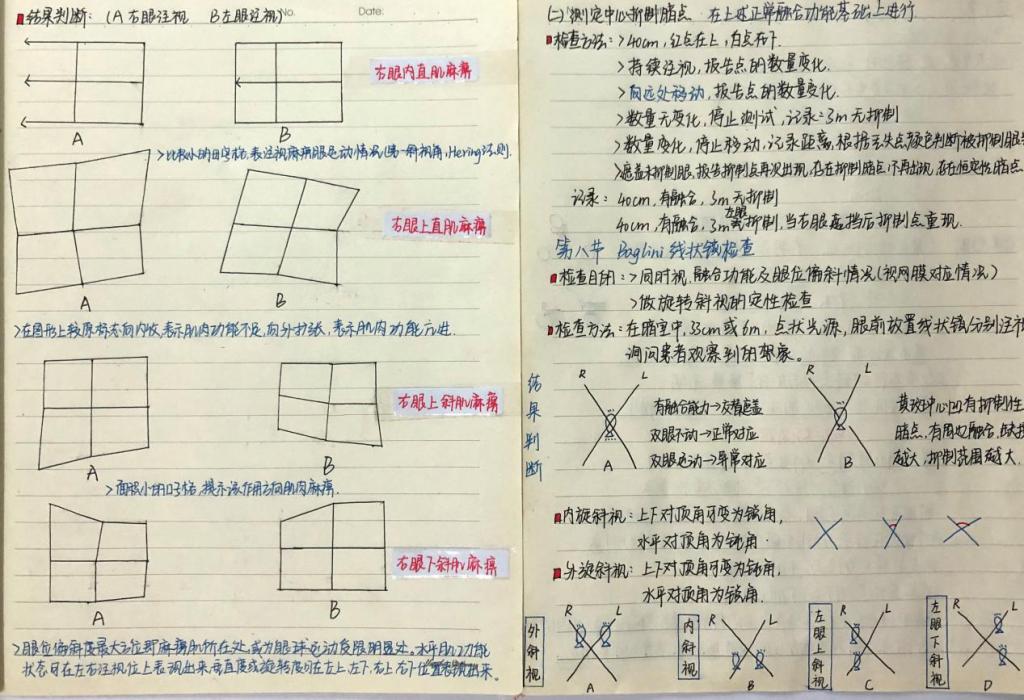 结果判断：（A 右眼注视 B 左眼注视）
No.
Date:
右眼内直肌麻痹
A
B
>比较小的田字格，表注视麻痹眼运动情况（第一斜视角，Hering法则.
右眼上直肌麻痹
A
B
>在图形上较原标志向内收，表示肌肉功能不足，向外扩张，表示肌肉功能亢进.
右眼上斜肌麻痹
A
B
>面积小的田字格，提示该作用方向肌肉麻痹.
右眼下斜肌麻痹
A
B
>眼位偏斜度最大方位即麻痹肌所在处，或为眼球运动受限明显处。水平肌功能
状态可在左右注视位上表现出来，垂直度或旋转度可在左上，左下，右上，右下位置表现出来。
(二) 测定中心抑制暗点 在上述正常融合功能基础上进行
检查方法：>40cm，红点在上，白点在下.
>持续注视，报告点的数量变化.
>向远处移动，报告点的数量变化.
>数量无变化，停止测试，记录：3m无抑制
>数量变化，停止移动，记录距离，根据丢失点颜色判断被抑制眼
>遮盖未抑制眼，报告抑制点再次出现，存在抑制暗点，不再出现，存在恒定性暗点
记录： 40cm，有融合，3m无抑制
40cm，有融合，3m左眼抑制，当右眼遮挡后抑制点重现.
第八节 Baglini 线状镜检查
检查目的：>同时视、融合功能及眼位偏斜情况（视网膜对应情况）
>做旋转斜视的定性检查
检查方法：在暗室中，33cm或6m，点状光源，眼前放置线状镜分别注视
询问患者观察到的想象。
结果判断
R L
有融合能力→交替遮盖
双眼不动→正常对应
双眼运动→异常对应
A
R L
B
黄斑中心凹有抑制性
暗点，有周边融合，缺损
越大，抑制范围越大.
内旋斜视：上下对顶角可变为锐角，
水平对顶角为钝角.
外旋斜视：上下对顶角可变为钝角，
水平对顶角为锐角.
外斜视
R L
A
内斜视
R L
B
左眼上斜视
R L
C
左眼下斜视
R L
D